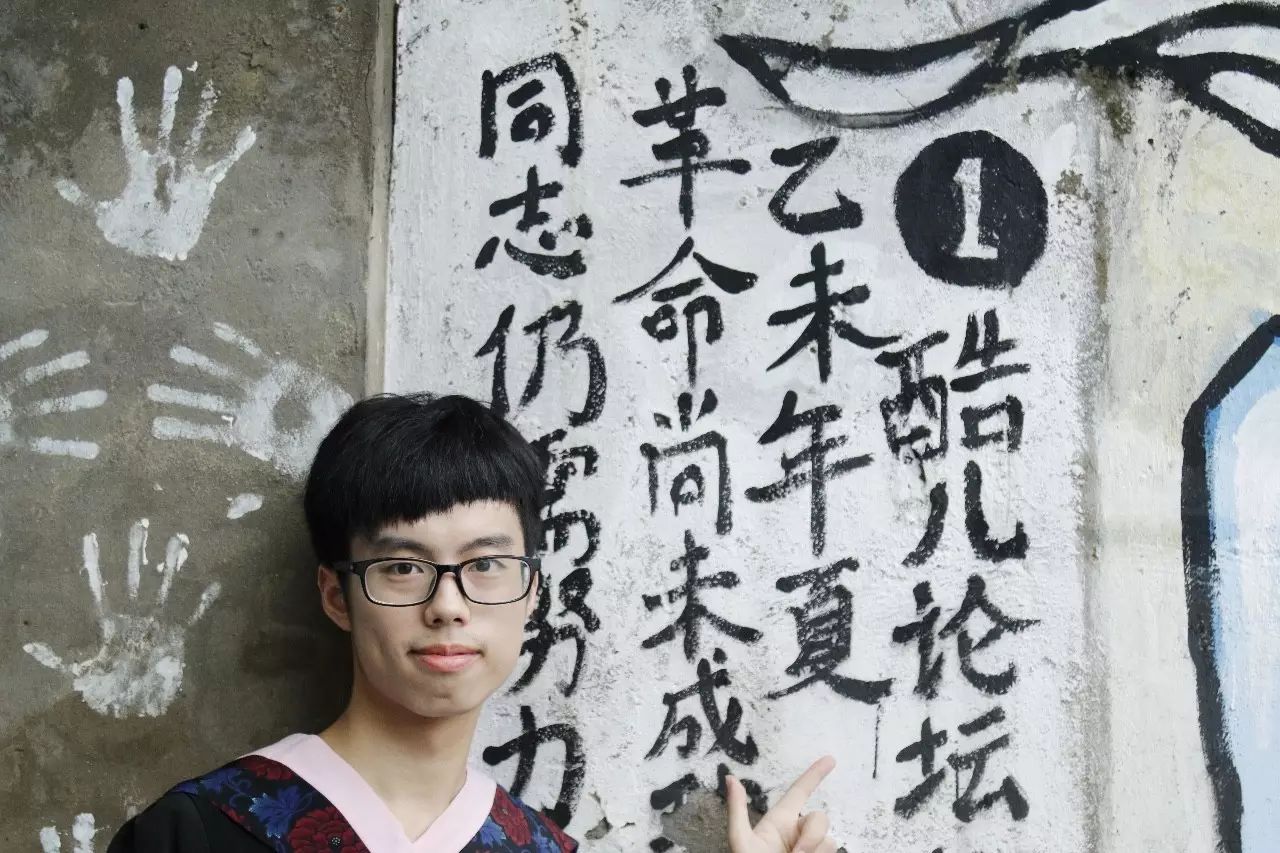 1
酷儿论坛
乙未年夏
革命尚未成
同志仍需努力